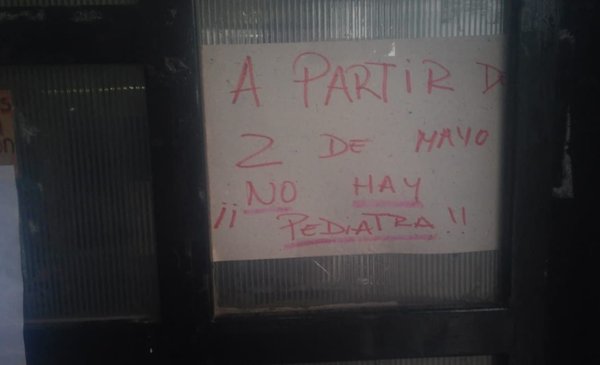 A PARTIR D
2 DE MAYO
NO HAY
¡¡ PEDIATRA!!